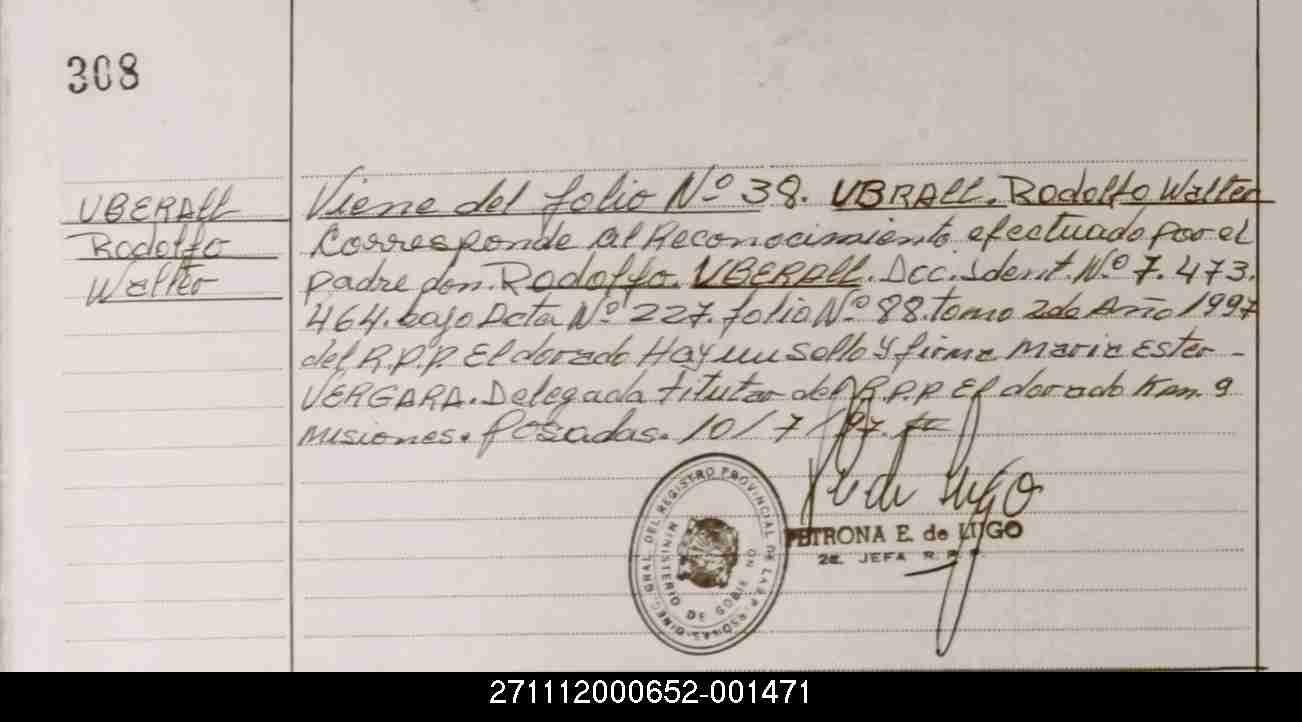 308
UBERAll
Rodolfo
Walter
Viene del folio Nº 38. UBRAll. Rodolfo Walter
Corresponde al Reconocimiento efectuado por el
padre don. Rodolfo. UBERAll. Doc. Ident. Nº 7.473.
464. bajo Acta Nº 227. folio Nº 88. tomo 2do Año 1997
del R.P.P. Eldorado Hay un Sello y firma Maria Ester -
VERGARA. Delegada titular del R.P.P. Eldorado Km. 9
Misiones. Posadas. 10/7/97.
DIREC. GRAL. DEL REGISTRO PROVINCIAL DE LAS PERSONAS
MINISTERIO DE GOBIERNO
PETRONA E. de LUGO
2ª JEFA R. P. P.
271112000652-001471